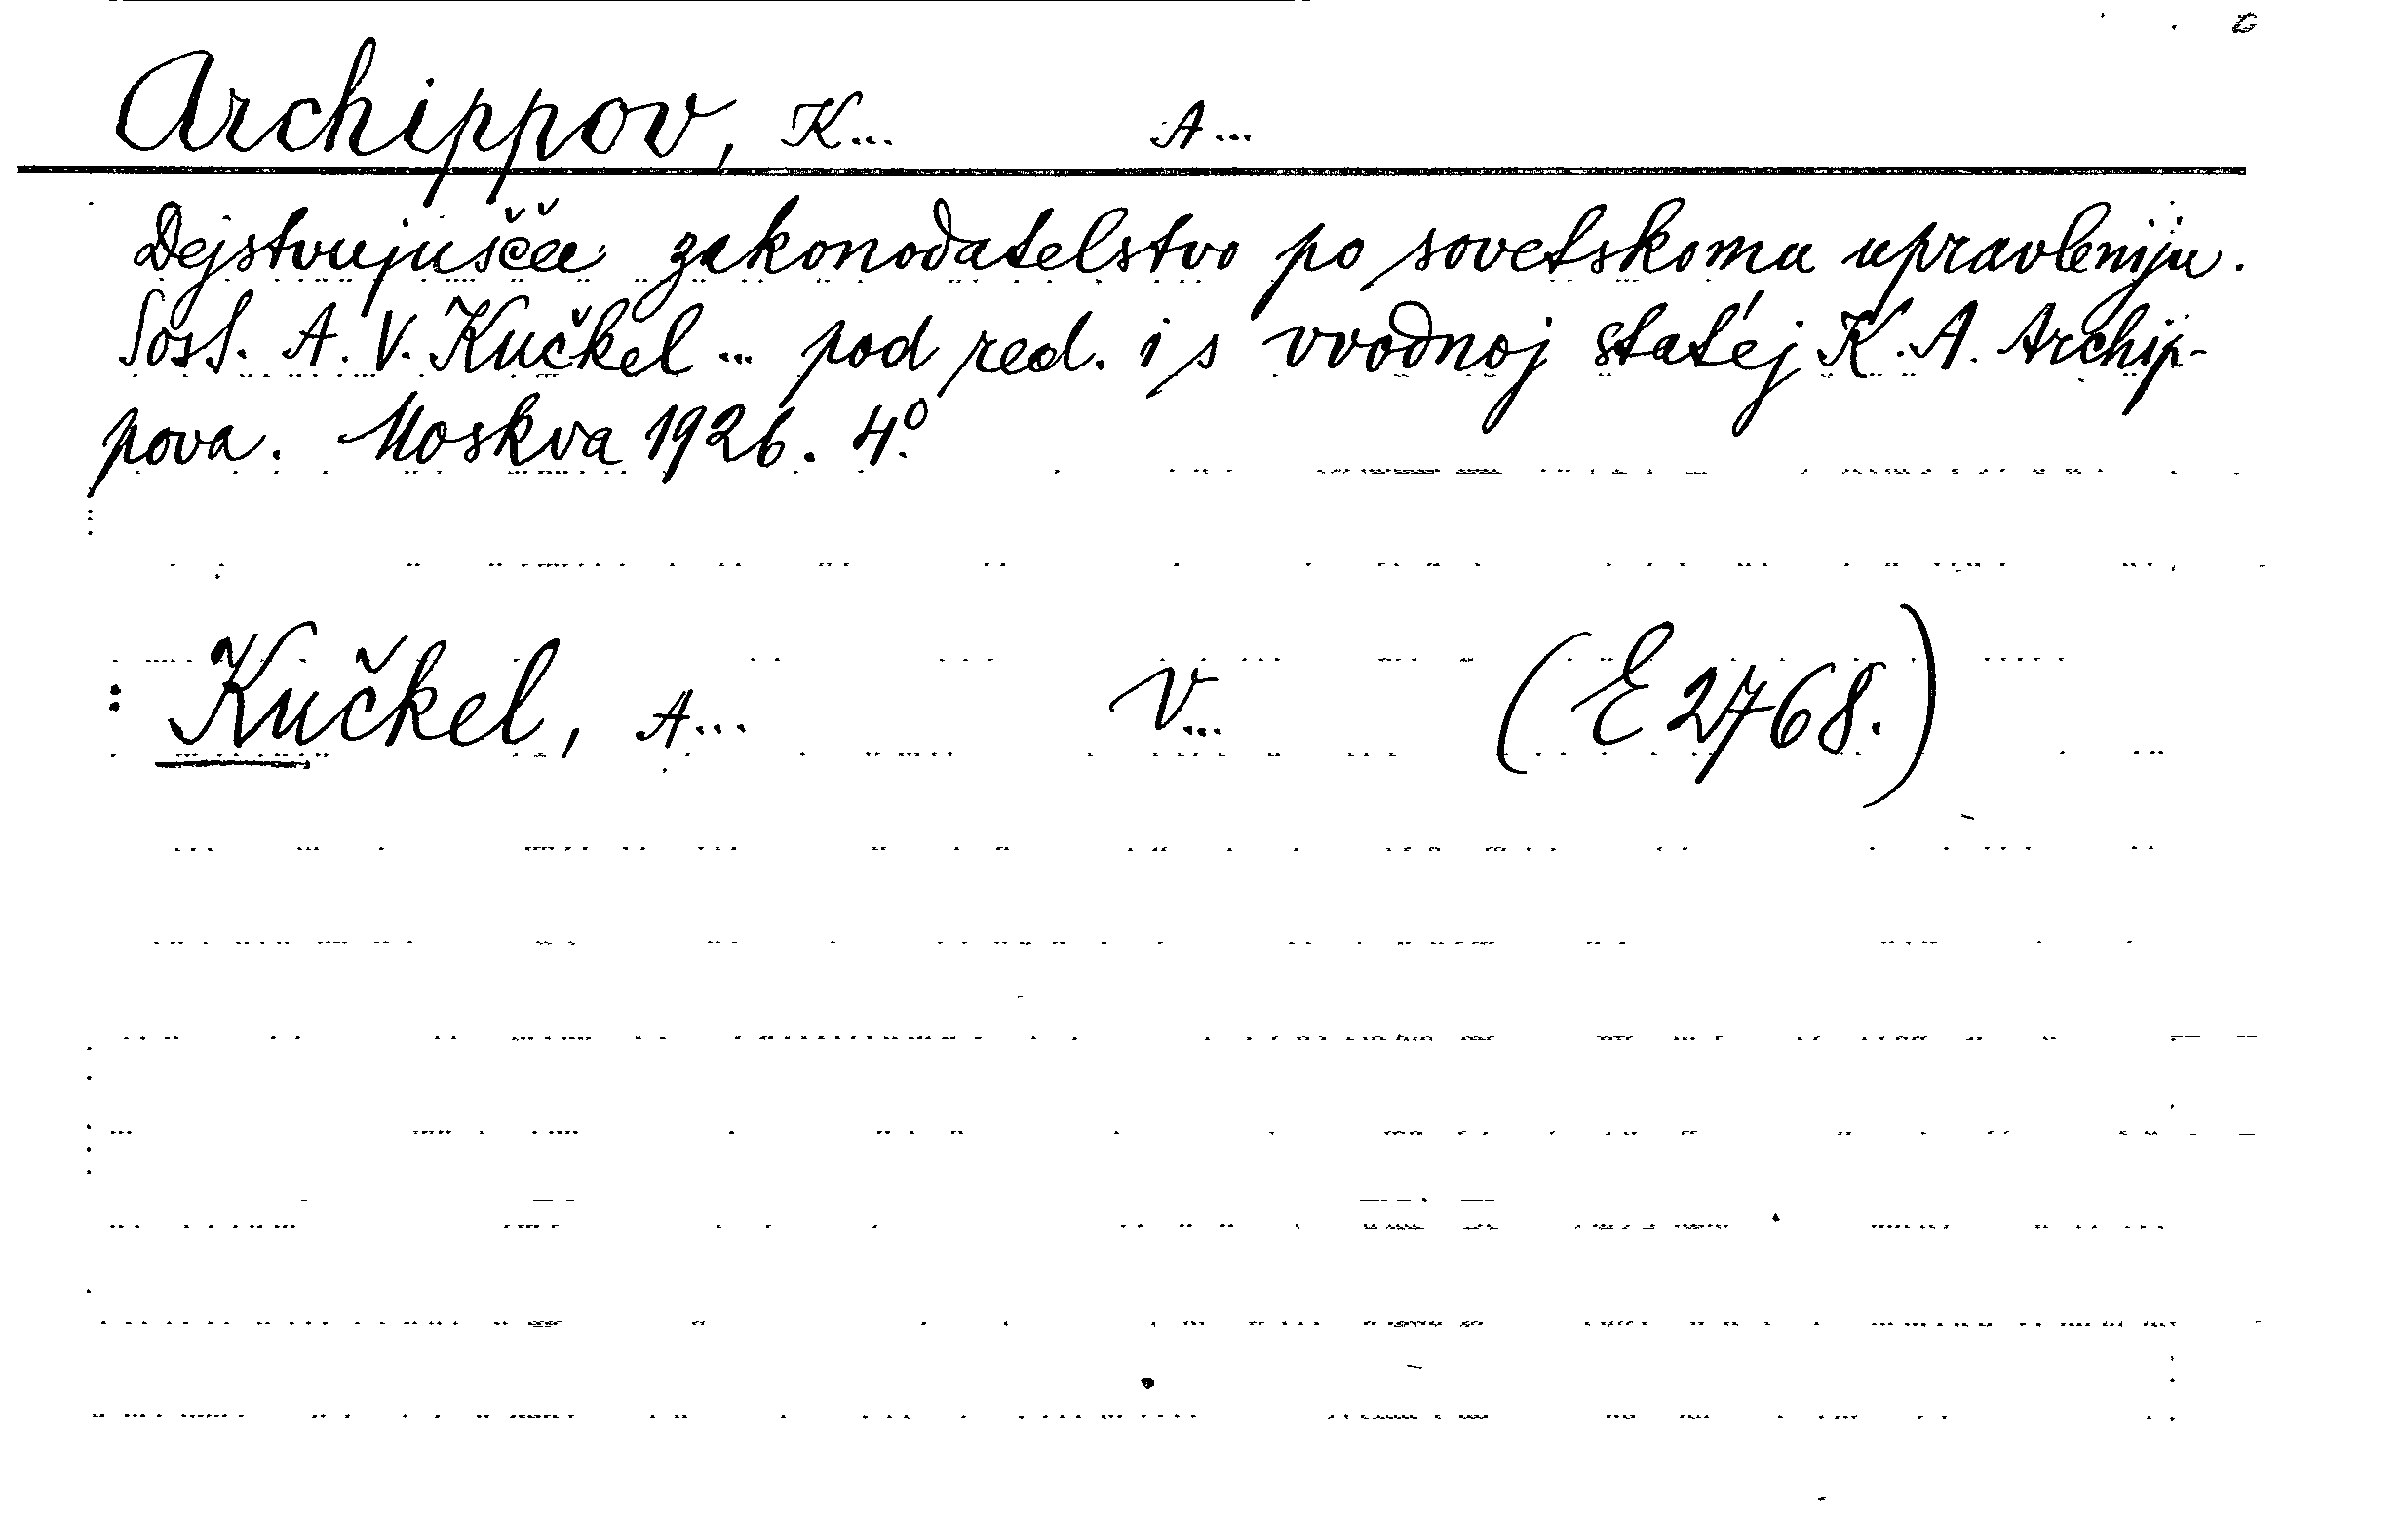 Archippov, K... A...
Dejstvujuščee zakonodatelstvo po sovetskomu upravleniju.
Sost. A. V. Kučkel ... pod red. i s vvodnoj stat'ej K. A. Archip-
pova. Moskva 1926. 4°.
: Kučkel, A... V... (E 2768.)